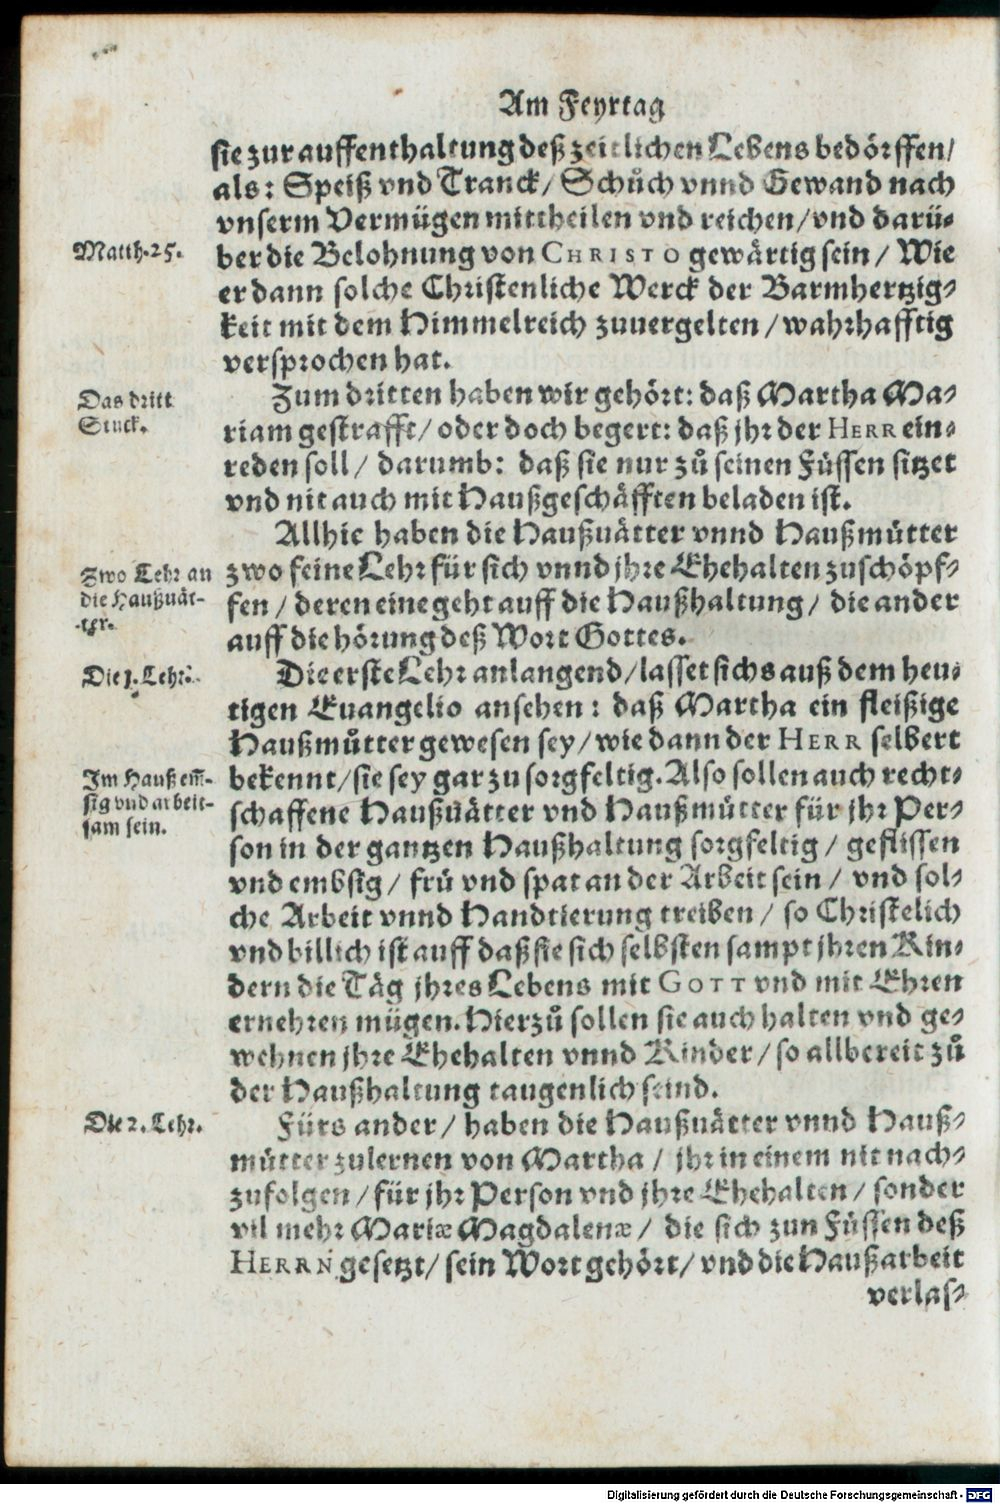 Am Feyrtag
sie zur auffenthaltung deß zeitlichen Lebens bedörffen/
als: Speiß vnd Tranck/ Schůch vnnd Gewand nach
vnserm Vermügen mittheilen vnd reichen/vnd darü-
Matth.25.
ber die Belohnung von CHRISTO gewärtig sein/ Wie
er dann solche Christenliche Werck der Barmhertzig-
keit mit dem Himmelreich zuuergelten/wahrhafftig
versprochen hat.
Das dritt
Stuck.
Zum dritten haben wir gehört: daß Martha Ma-
riam gestrafft/ oder doch begert: daß jhr der HERR ein-
reden soll/ darumb: daß sie nur zů seinen Füssen sitzet
vnd nit auch mit Haußgeschäfften beladen ist.
Allhie haben die Haußuätter vnnd Haußmütter
Zwo Lehr an
die Haußuät-
ter.
zwo feine Lehr für sich vnnd jhre Ehehalten zuschöpf-
fen/ deren eine geht auff die Haußhaltung/ die ander
auff die hörung deß Wort Gottes.
Die 1. Lehr.
Die erste Lehr anlangend/lasset sichs auß dem heu-
tigen Euangelio ansehen: daß Martha ein fleißige
Haußmůtter gewesen sey/wie dann der HERR selbert
Im Hauß em̃-
sig vnd arbeit-
sam sein.
bekennt/sie sey gar zu sorgfeltig. Also sollen auch recht-
schaffene Haußuätter vnd Haußmütter für jhr Per-
son in der gantzen Haußhaltung sorgfeltig/ geflissen
vnd embsig/ frü vnd spat an der Arbeit sein/ vnd sol-
che Arbeit vnnd Handtierung treiben/ so Christelich
vnd billich ist auff daß sie sich selbsten sampt jhren Kin-
dern die Täg jhres Lebens mit GOTT vnd mit Ehren
ernehren mügen. Hierzů sollen sie auch halten vnd ge-
wehnen jhre Ehehalten vnnd Kinder/so allbereit zů
der Haußhaltung taugenlich seind.
Die 2. Lehr.
Fürs ander/ haben die Haußuätter vnnd Hauß-
mütter zulernen von Martha/ jhr in einem nit nach-
zufolgen/für jhr Person vnd jhre Ehehalten/ sonder
vil mehr Mariæ Magdalenæ/ die sich zun Füssen deß
HERRN gesetzt/ sein Wort gehört/ vnd die Haußarbeit
verlas-
Digitalisierung gefördert durch die Deutsche Forschungsgemeinschaft - DFG